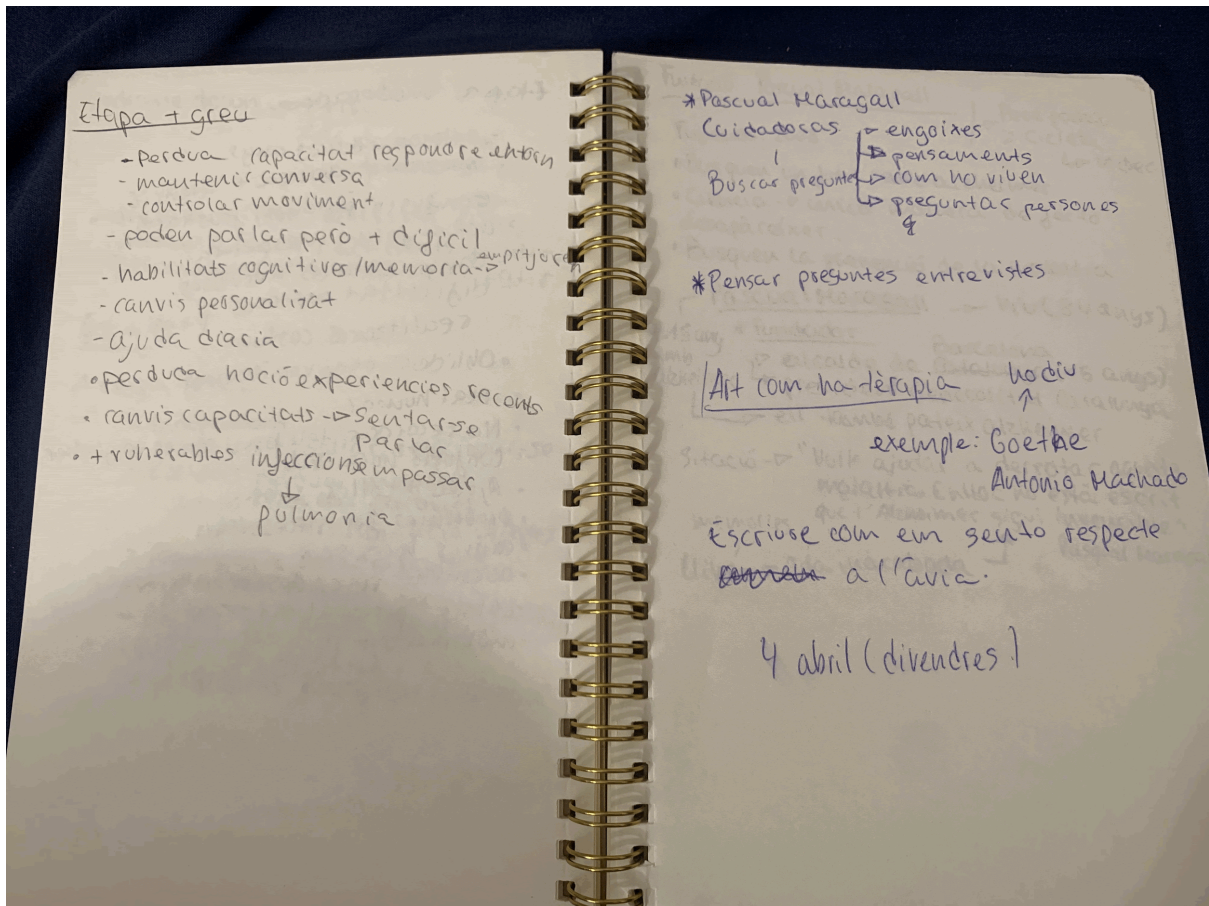 Etapa + greu
- perdua capacitat respondre entorn
- mantenir conversa
- controlar moviment
- poden parlar però + dificil
- habilitats cognitives/memoria -> empitjoren
- canvis personalitat
- ajuda diaria
• perduda noció experiencies recents
• canvis capacitats -> Sentar-se
parlar
empassar
• + vulnerables infeccions
↓
pulmonia
*Pascual Maragall
Cuidadoras -> engoixes
-> pensaments
Buscar preguntes -> com ho viven
-> preguntar persones
q
*Pensar preguntes entrevistes
Art com ha tèrapia
ho diu
↑
exemple: Goethe
Antonio Machado
Escriure com em sento respecte
a l'àvia.
4 abril (divendres)